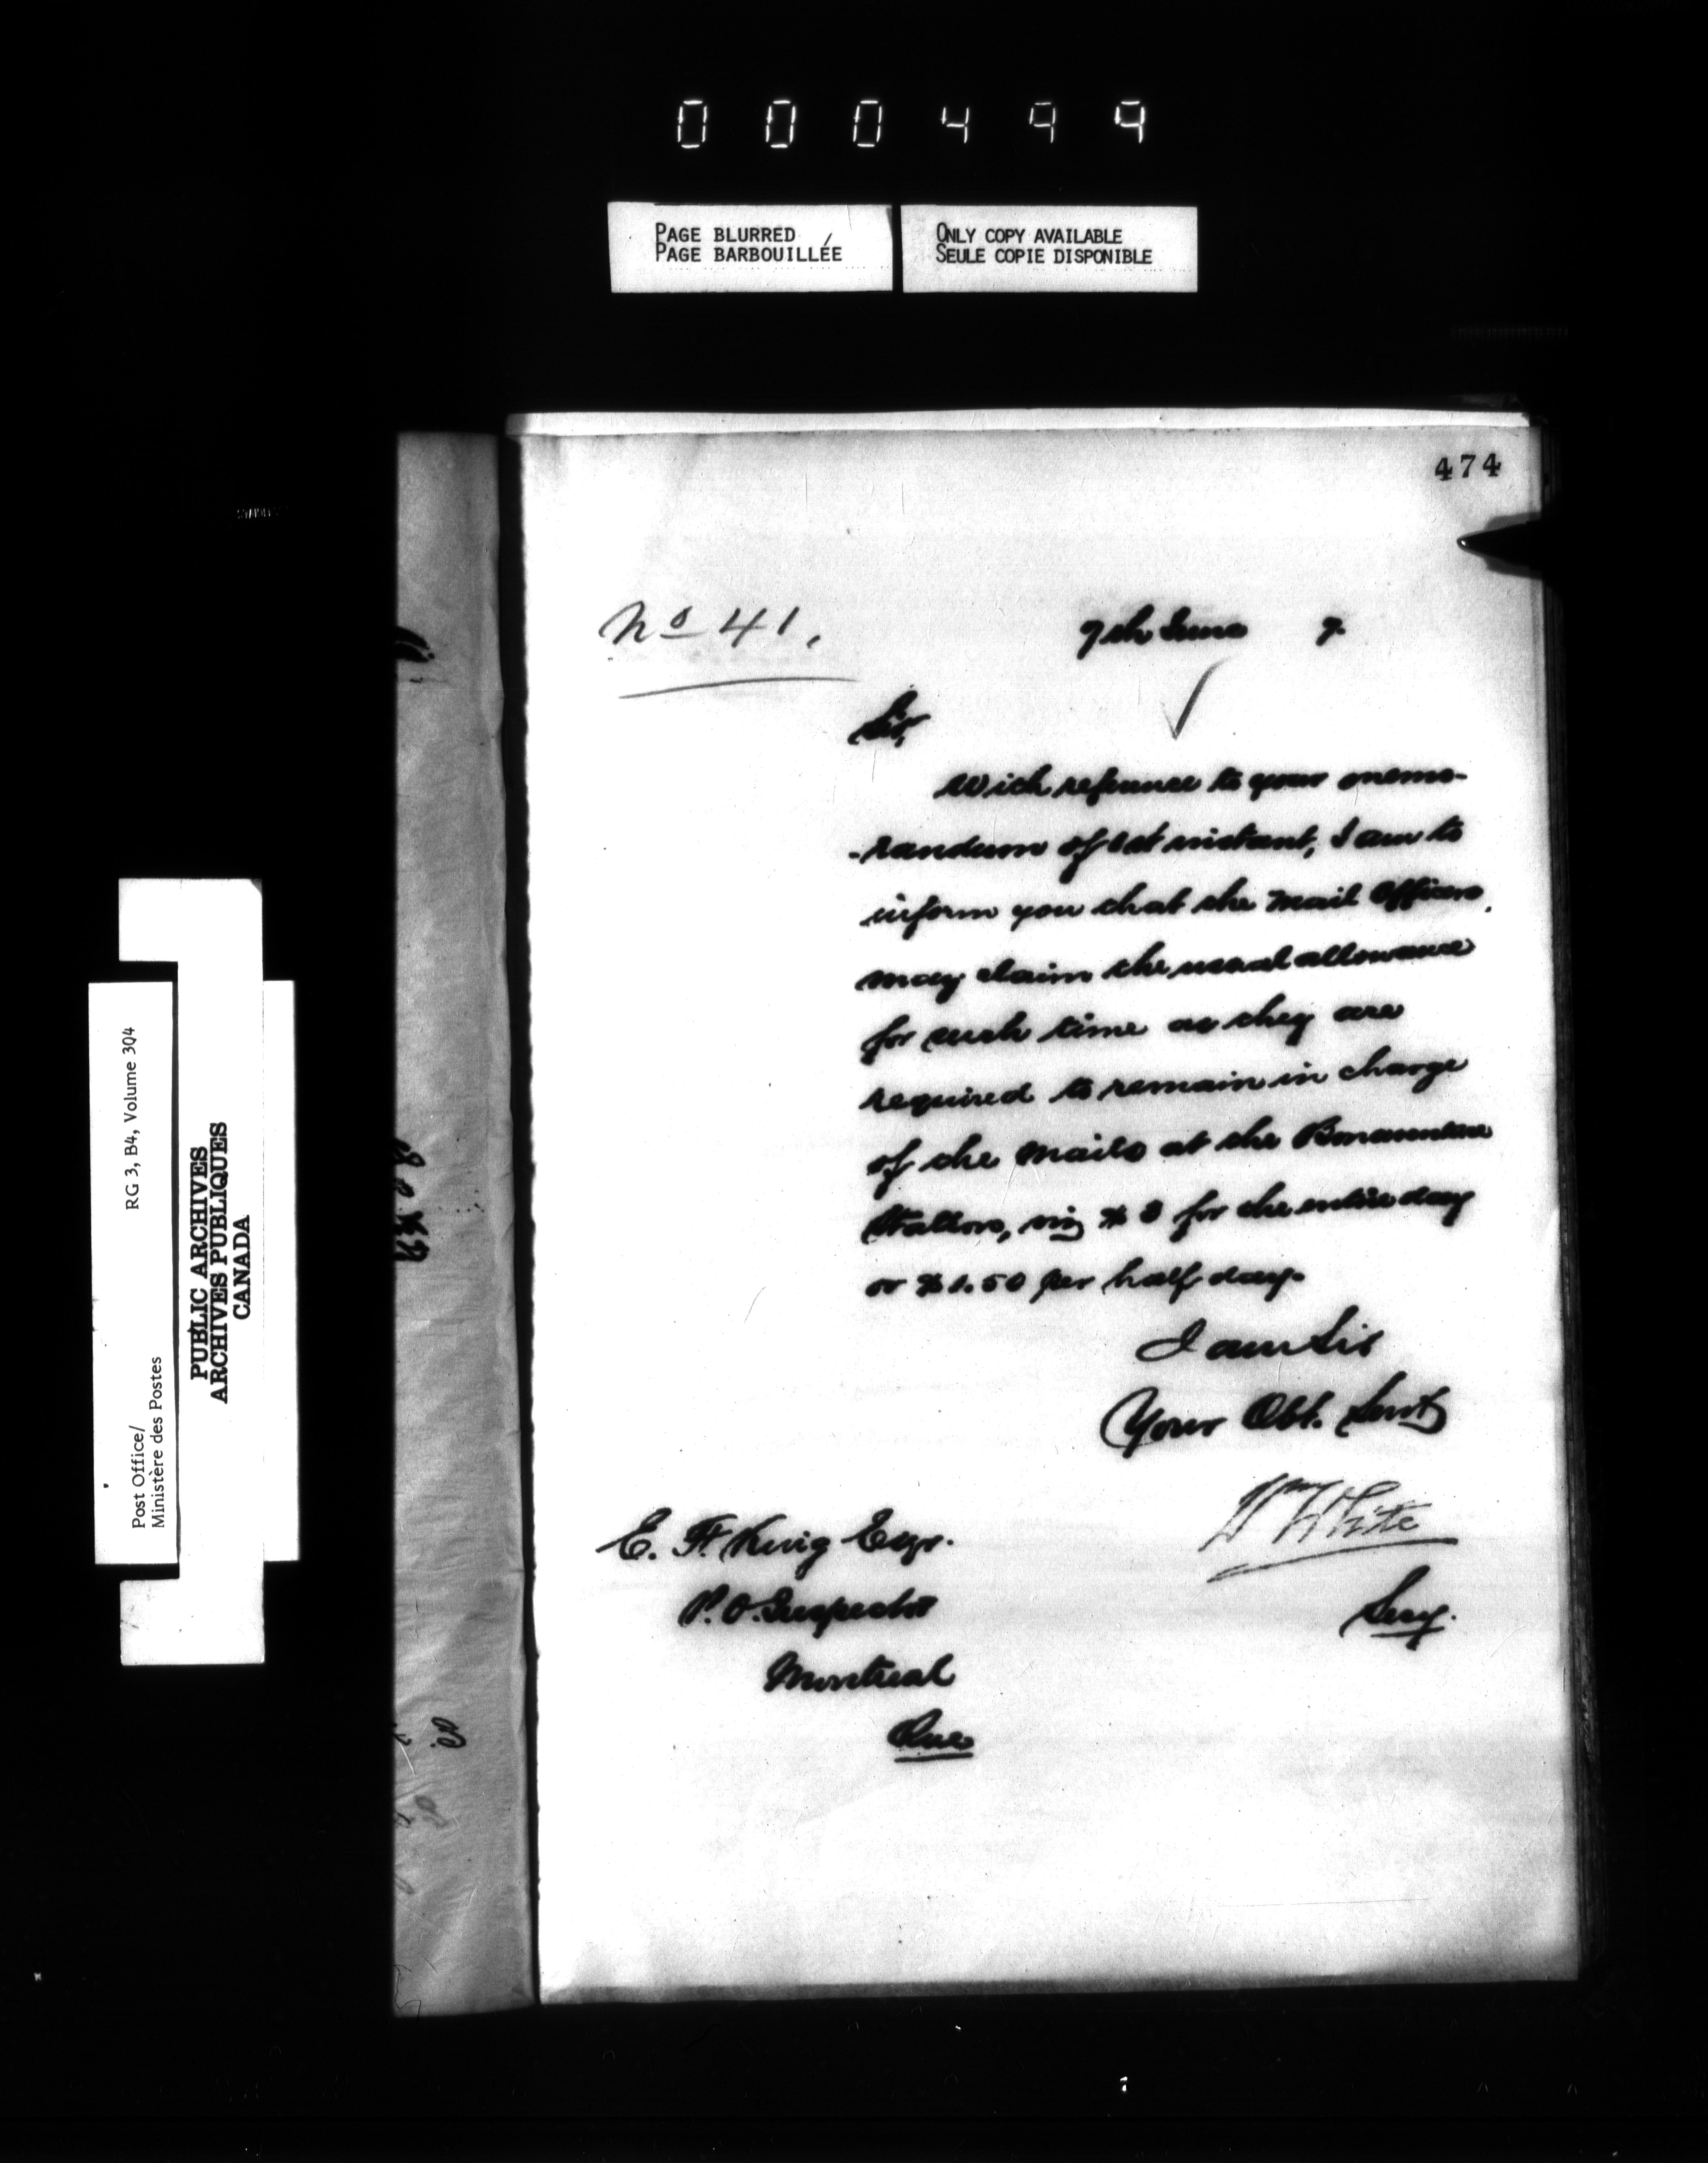 000499
PAGE BLURRED
PAGE BARBOUILLÉE
ONLY COPY AVAILABLE
SEULE COPIE DISPONIBLE
474
No 41.
7th June 9.
Sir,
With reference to your memo-
-randum of 1st instant, I am to
inform you that the Mail Officers
may claim the usual allowance
for such time as they are
required to remain in charge
of the Mails at the Bonaventure
Station, viz $3 for the entire day
or $1.50 per half day.
I am Sir
Your Obt. Servt
Wm White
Secy.
E. F. King Esqr.
P.O. Inspector
Montreal
Que
Post Office/
Ministère des Postes
RG 3, B4, Volume 304
PUBLIC ARCHIVES
ARCHIVES PUBLIQUES
CANADA